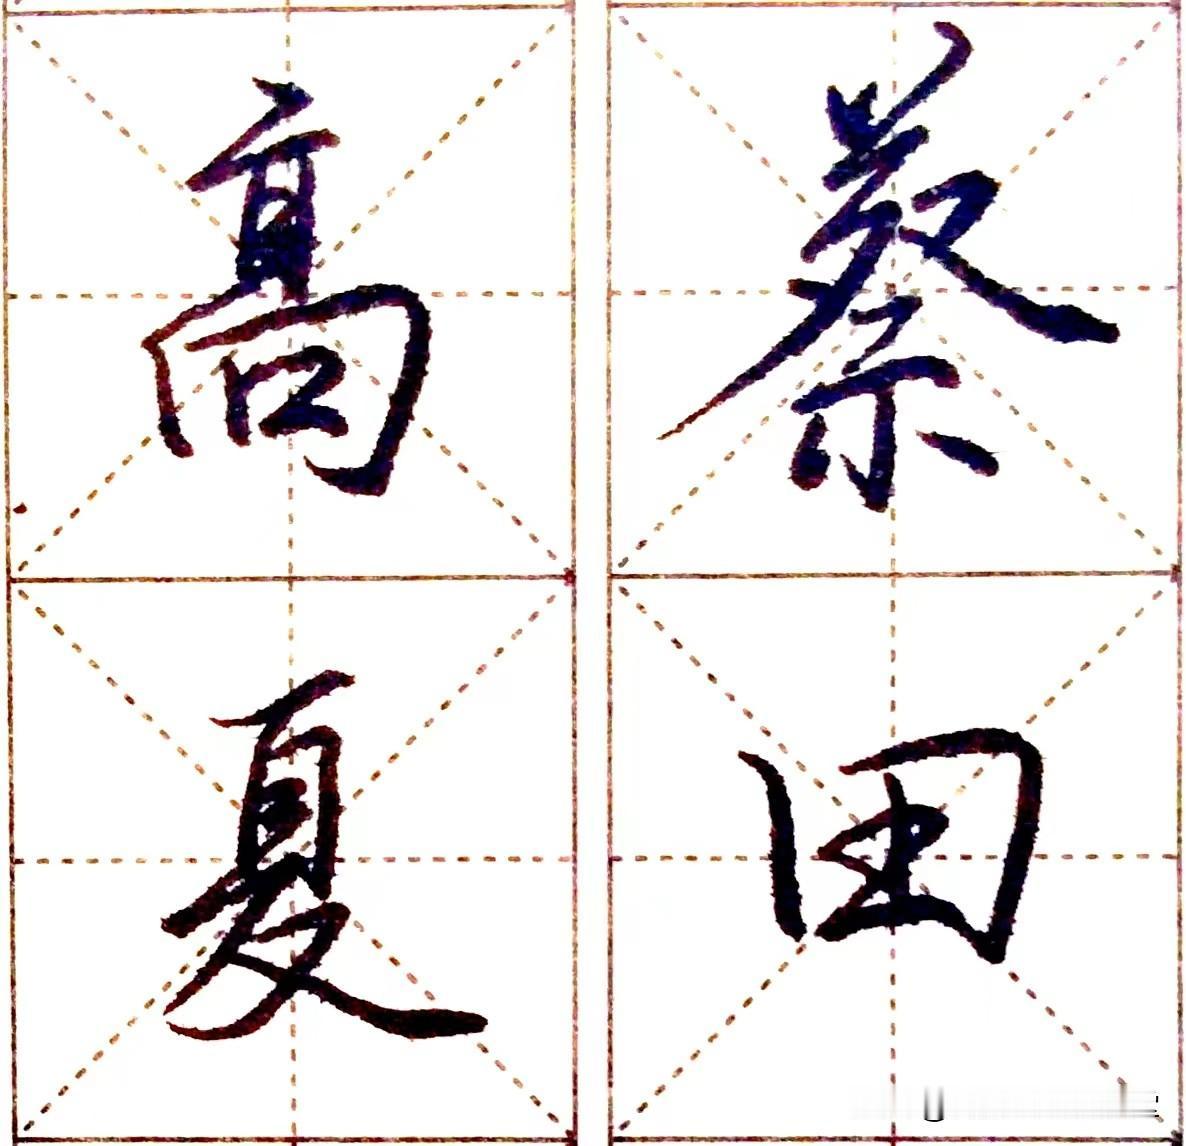 高 蔡
夏 田